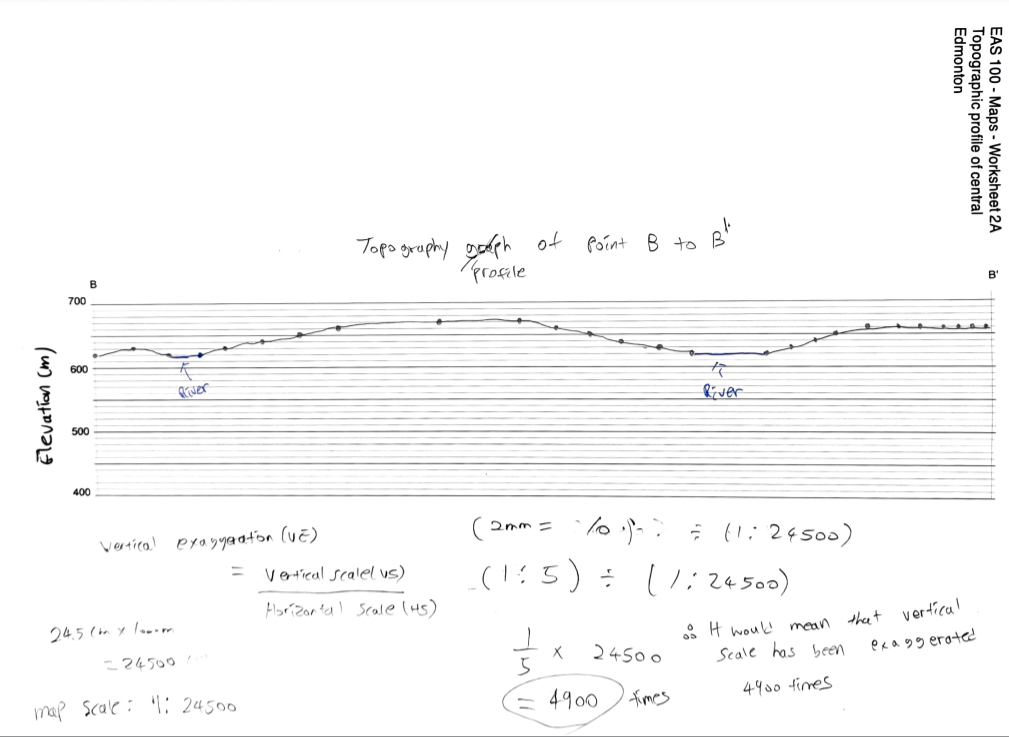 EAS 100 - Maps - Worksheet 2A
Topographic profile of central
Edmonton
Topography graph of point B to B'
profile
B
B'
700
600
500
400
Elevation (m)
River
River
Vertical exaggeration (VE)
= Vertical scale (VS)
Horizontal scale (HS)
24.5 cm x
= 24500
map scale: 1: 24500
(2mm = 10 ÷ (1: 24500)
(1:5) ÷ (1:24500)
1
5 x 24500
= 4900 times
∴ It would mean that vertical
scale has been exaggerated
4900 times